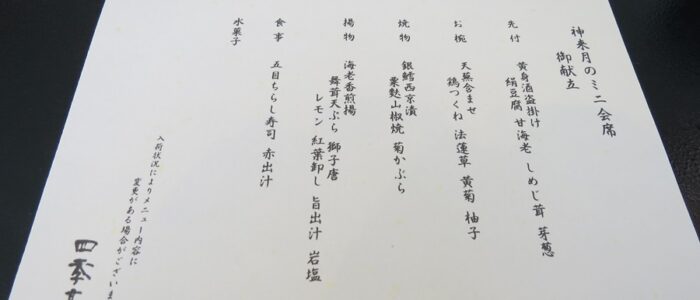 神来月のミニ会席
御献立
先付
黄身酒盗掛け
絹豆腐 甘海老 しめじ茸 芽葱
お椀
天蕪含ませ
鶏つくね 法蓮草 黄菊 柚子
焼物
銀鱈西京漬
粟麩山椒焼 菊かぶら
揚物
海老香煎揚
舞茸天ぷら 獅子唐
レモン 紅葉卸し 旨出汁 岩塩
食事
五目ちらし寿司 赤出汁
水菓子
入荷状況によりメニュー内容に
変更がある場合がございま
四季